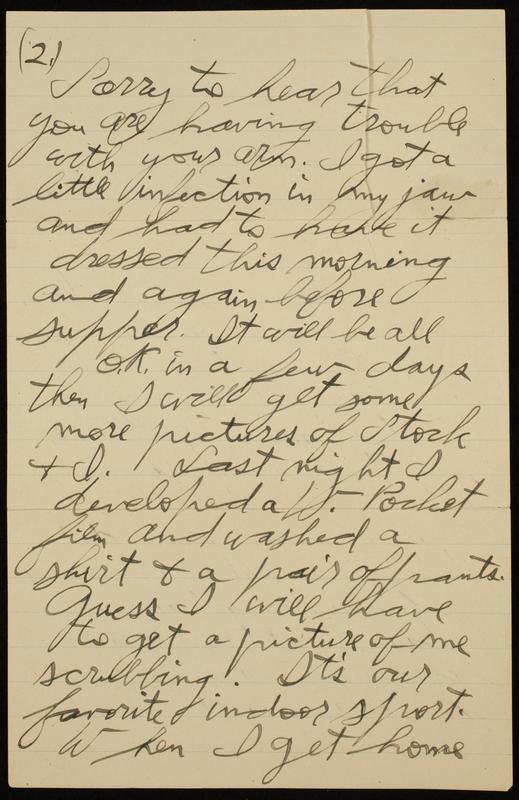 (2.)
Sorry to hear that
you are having trouble
with your arm. I got a
little infection in my jaw
and had to have it
dressed this morning
and again before
supper. It will be all
O.K. in a few days
then I will get some
more pictures of Stock
& I. Last night I
developed a V.- Pocket
film and washed a
shirt & a pair of pants.
Guess I will have
to get a picture of me
scrubbing. It's our
favorite indoor sport.
When I get home